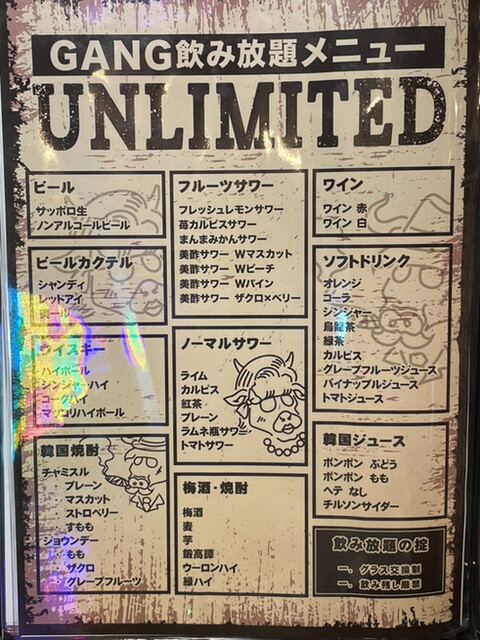 GANG飲み放題メニュー
UNLIMITED
ビール
サッポロ生
ノンアルコールビール
ビールカクテル
シャンディ
レッドアイ
ウイスキー
ハイボール
ジンジャーハイ
コークハイ
マッコリハイボール
韓国焼酎
チャミスル
プレーン
マスカット
ストロベリー
すもも
ジョウンデー
もも
ザクロ
グレープフルーツ
フルーツサワー
フレッシュレモンサワー
苺カルピスサワー
まんまみかんサワー
美酢サワー Wマスカット
美酢サワー Wピーチ
美酢サワー Wパイン
美酢サワー ザクロ×ベリー
ノーマルサワー
ライム
カルピス
紅茶
プレーン
ラムネ瓶サワー
トマトサワー
梅酒・焼酎
梅酒
麦
芋
鍛高譚
ウーロンハイ
緑ハイ
ワイン
ワイン 赤
ワイン 白
ソフトドリンク
オレンジ
コーラ
ジンジャー
烏龍茶
緑茶
カルピス
グレープフルーツジュース
パイナップルジュース
トマトジュース
韓国ジュース
ポンポン ぶどう
ポンポン もも
ヘテ なし
チルソンサイダー
飲み放題の掟
一、グラス交換制
一、飲み残し厳禁